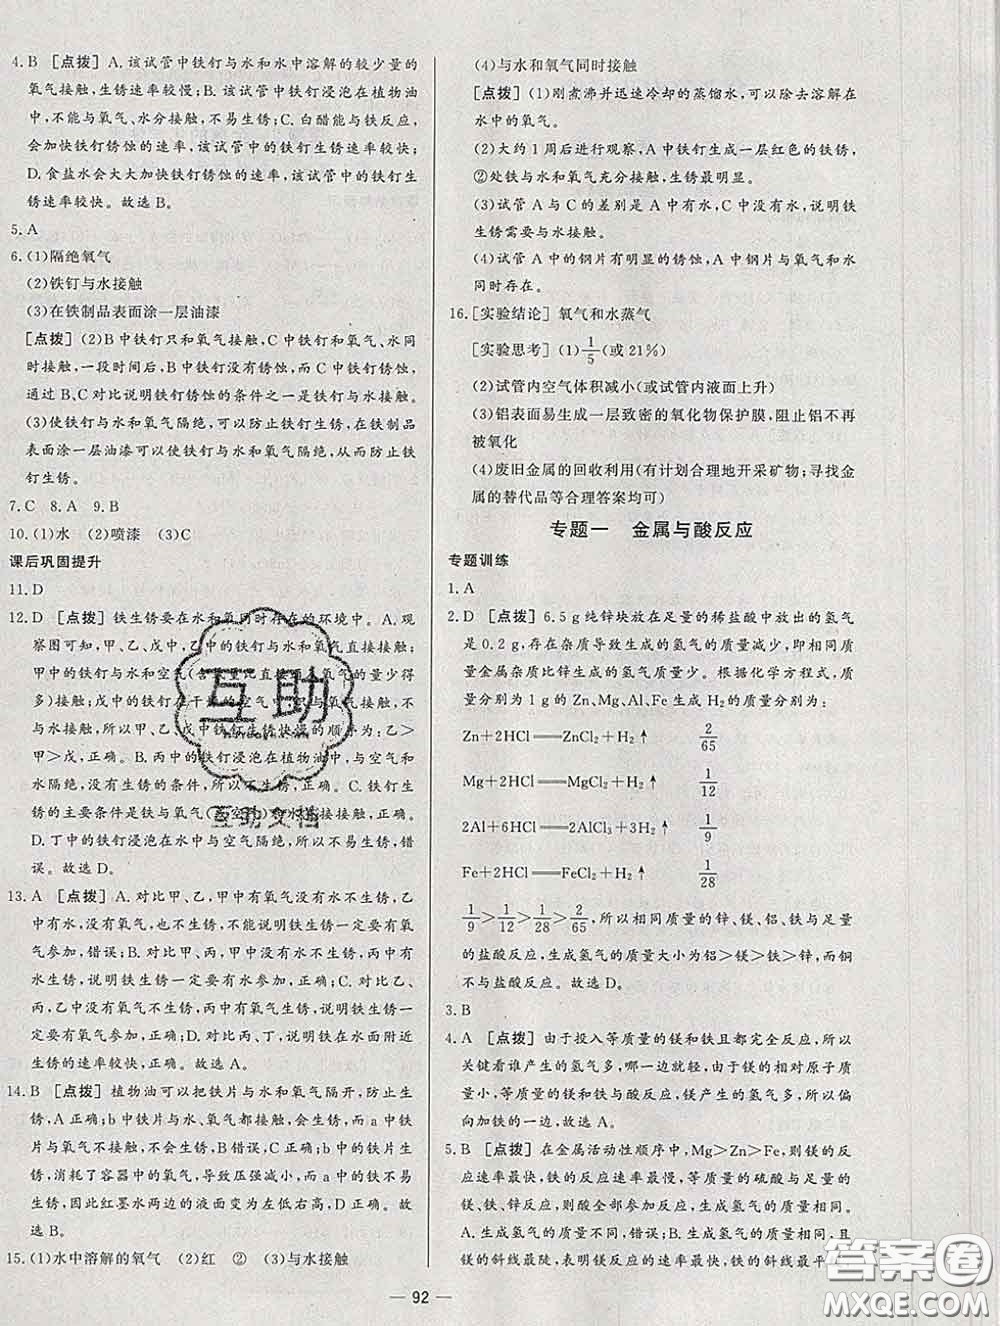 4. B [点拨] A. 该试管中铁钉与水和水中溶解的较少量的
氧气接触,生锈速率较慢;B. 该试管中铁钉浸泡在植物油
中,不能与氧气、水分接触,不易生锈;C. 白醋能与铁反应,
会加快铁钉锈蚀的速率,该试管中的铁钉生锈速率较快;
D. 食盐水会大大加快铁钉锈蚀的速率,该试管中的铁钉生
锈速率较快。故选 B。
5. A
6. (1)隔绝氧气
(2)铁钉与水接触
(3)在铁制品表面涂一层油漆
[点拨] (2)B 中铁钉只和氧气接触,C 中铁钉与氧气、水同
时接触,一段时间后,B 中铁钉没有锈蚀,而 C 中铁钉锈蚀,
通过 B、C 对比说明铁钉锈蚀的条件之一是铁钉与水接触。
(3)使铁钉与水和氧气隔绝,可以防止铁钉生锈,在铁制品
表面涂一层油漆可以使铁钉与水和氧气隔绝,从而防止铁
钉生锈。
7. C 8. A 9. B
10. (1)水 (2)喷漆 (3)C
课后巩固提升
11. D
12. D [点拨] 铁生锈要在水和氧同时存在的环境中。A. 观
察图可知,甲、乙、戊中,乙中的铁钉与水和氧气直接接触;
甲中的铁钉与水和空气(含
多)接触;戊中的铁钉在干燥的空气中与氧气接触,不
与水接触,所以甲、乙、戊中铁钉生锈快慢的顺序为:乙>
甲>戊,正确。B. 丙中的铁钉浸泡在植物油中,与空气和
水隔绝,所以不能生锈。所以不生锈,正确。C. 铁钉生锈
的主要条件是铁与氧气(或空气)和水直接接触,正确。
D. 丁中的铁钉浸泡在水中与空气隔绝,所以不生锈,错
误。故选 D。
13. A [点拨] A. 对比甲、乙,甲中有氧气没有水不生锈,乙
中有水,没有氧气,也不生锈,不能说明铁生锈一定要有氧
气参加,错误;B. 对比甲、丙,甲中没有水不生锈,丙中有
水生锈,说明铁生锈一定要有水参加,正确;C. 对比乙、
丙,乙中没有氧气不生锈,丙中有氧气生锈,说明铁生锈一
定要有氧气参加,正确;D. 对比丙、丁,说明铁在水面附近
生锈的速率较快,正确。故选 A。
14. B [点拨] 植物油可以把铁片与水和氧气隔开,防止生
锈,A 正确;b 中铁片与水、氧气都接触,会生锈,而 a 中铁
片与氧气不接触,不会生锈,B 错误,C 正确;b 中的铁片生
锈,消耗了容器中的氧气,导致压强减小,而 a 中的铁片不
生锈,因此红墨水两边的液面变为左低右高,D 正确。故
选 B。
15. (1)水中溶解的氧气 (2)红 ② (3)与水接触
(4)与水和氧气同时接触
[点拨] (1)刚煮沸并迅速冷却的蒸馏水,可以除去溶解在
水中的氧气。
(2)大约 1 周后进行观察,A 中铁钉生成一层红色的铁锈,
②处铁与水和氧气充分接触,生锈最明显。
(3)试管 A 与 C 的差别是 A 中有水,C 中没有水,说明铁
生锈需要与水接触。
(4)试管 A 中的钢片有明显的锈蚀,A 中钢片与氧气和水
同时存在。
16. [实验结论] 氧气和水蒸气
[实验思考] (1)1/5(或 21%)
(2)试管内空气体积减小(或试管内液面上升)
(3)铝表面易生成一层致密的氧化物保护膜,阻止铝不再
被氧化
(4)废旧金属的回收利用(有计划合理地开采矿物;寻找金
属的替代品等合理答案均可)
专题一 金属与酸反应
专题训练
1. A
2. D [点拨] 6.5 g 纯锌块放在足量的稀盐酸中放出的氢气
是 0.2 g,存在杂质导致生成的氢气的质量减少,即相同质
量金属杂质比锌生成的氢气质量少。根据化学方程式,质
量分别为 1 g 的 Zn、Mg、Al、Fe 生成 H₂ 的质量分别为:
Zn+2HCl══ZnCl₂+H₂↑ 2/65
Mg+2HCl══MgCl₂+H₂↑ 1/12
2Al+6HCl══2AlCl₃+3H₂↑ 1/9
Fe+2HCl══FeCl₂+H₂↑ 1/28
1/9>1/12>1/28>2/65,所以相同质量的锌、镁、铝、铁与足量
的盐酸反应,生成氢气的质量大小为铝>镁>铁>锌,而铜
不与盐酸反应。故选 D。
3. B
4. A [点拨] 由于投入等质量的镁和铁且都完全反应,所以
关键看谁产生的氢气多,哪一边就轻一些,由于镁的相对原子质
量小,等质量的镁和铁与酸反应,镁产生的氢气多,指针
偏向加铁的一边,故选 A。
5. B [点拨] 在金属活动性顺序中,Mg>Zn>Fe,则镁的反
应速率最快,铁的反应速率最慢。等质量的硫酸与足量的
镁、铁、锌反应,则酸完全反应,生成氢气的质量相同。
A. 生成氢气的质量不同,错误;B. 生成氢气的质量相同,且
镁的斜线最陡,表示镁反应速率最快,铁的斜线最平
92
互助
互助文档
答案圈
MXQE.COM